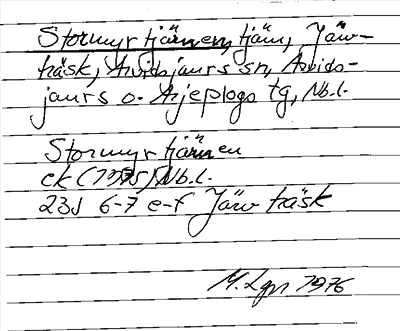 Stormyrtjärnen, tjärn, Järv-
träsk, Arvidsjaurs sn, Arvids-
jaurs o. Arjeplogs tg, Nb.l.
Stormyrtjärnen
ek (1975) Nb.l.
23J 6-7 e-f Järvträsk
M. Lgn 1976